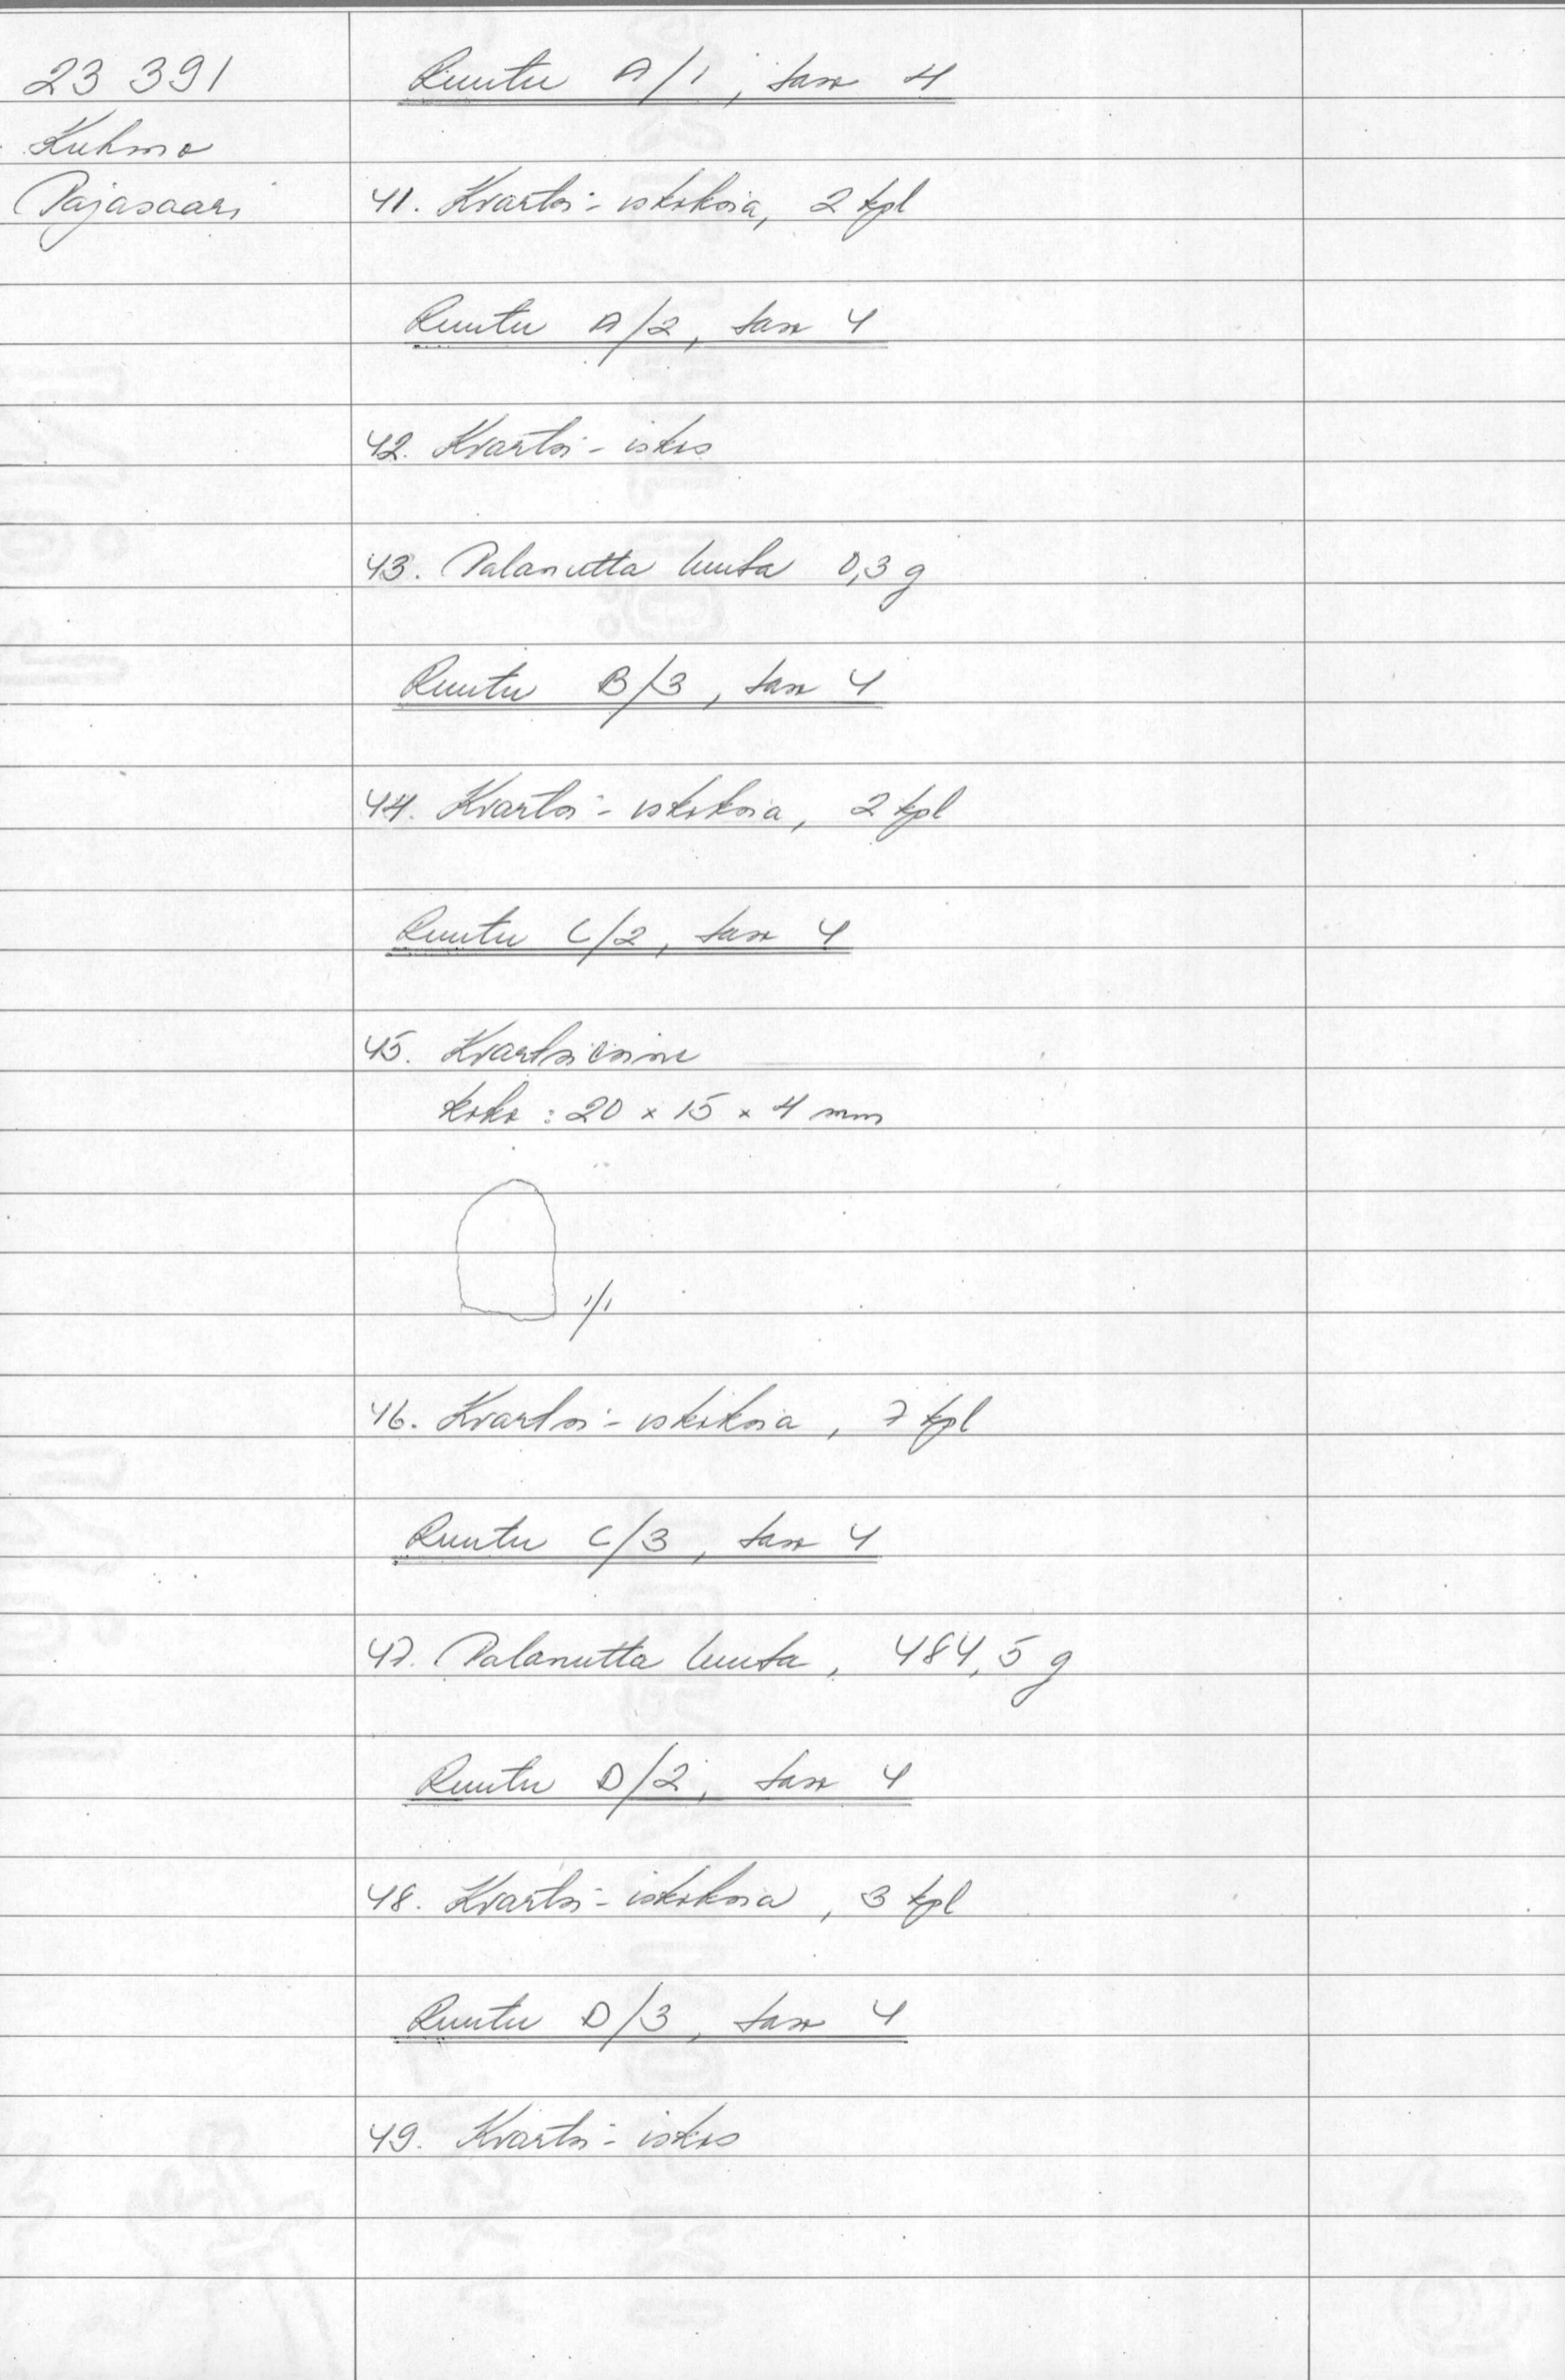 23 391
Kuhmo
Pajasaari
Ruutu A/1, taso 4
41. Kvartsi-iskoksia, 2 kpl
Ruutu A/2, taso 4
42. Kvartsi-iskos
43. Palanutta luuta 0,3 g
Ruutu B/3, taso 4
44. Kvartsi-iskoksia, 2 kpl
Ruutu C/2, taso 4
45. Kvartsiesine
koko: 20 x 15 x 4 mm
1/1
46. Kvartsi-iskoksia, 7 kpl
Ruutu C/3, taso 4
47. Palanutta luuta, 484,5 g
Ruutu D/2, taso 4
48. Kvartsi-iskoksia, 3 kpl
Ruutu D/3, taso 4
49. Kvartsi-iskos